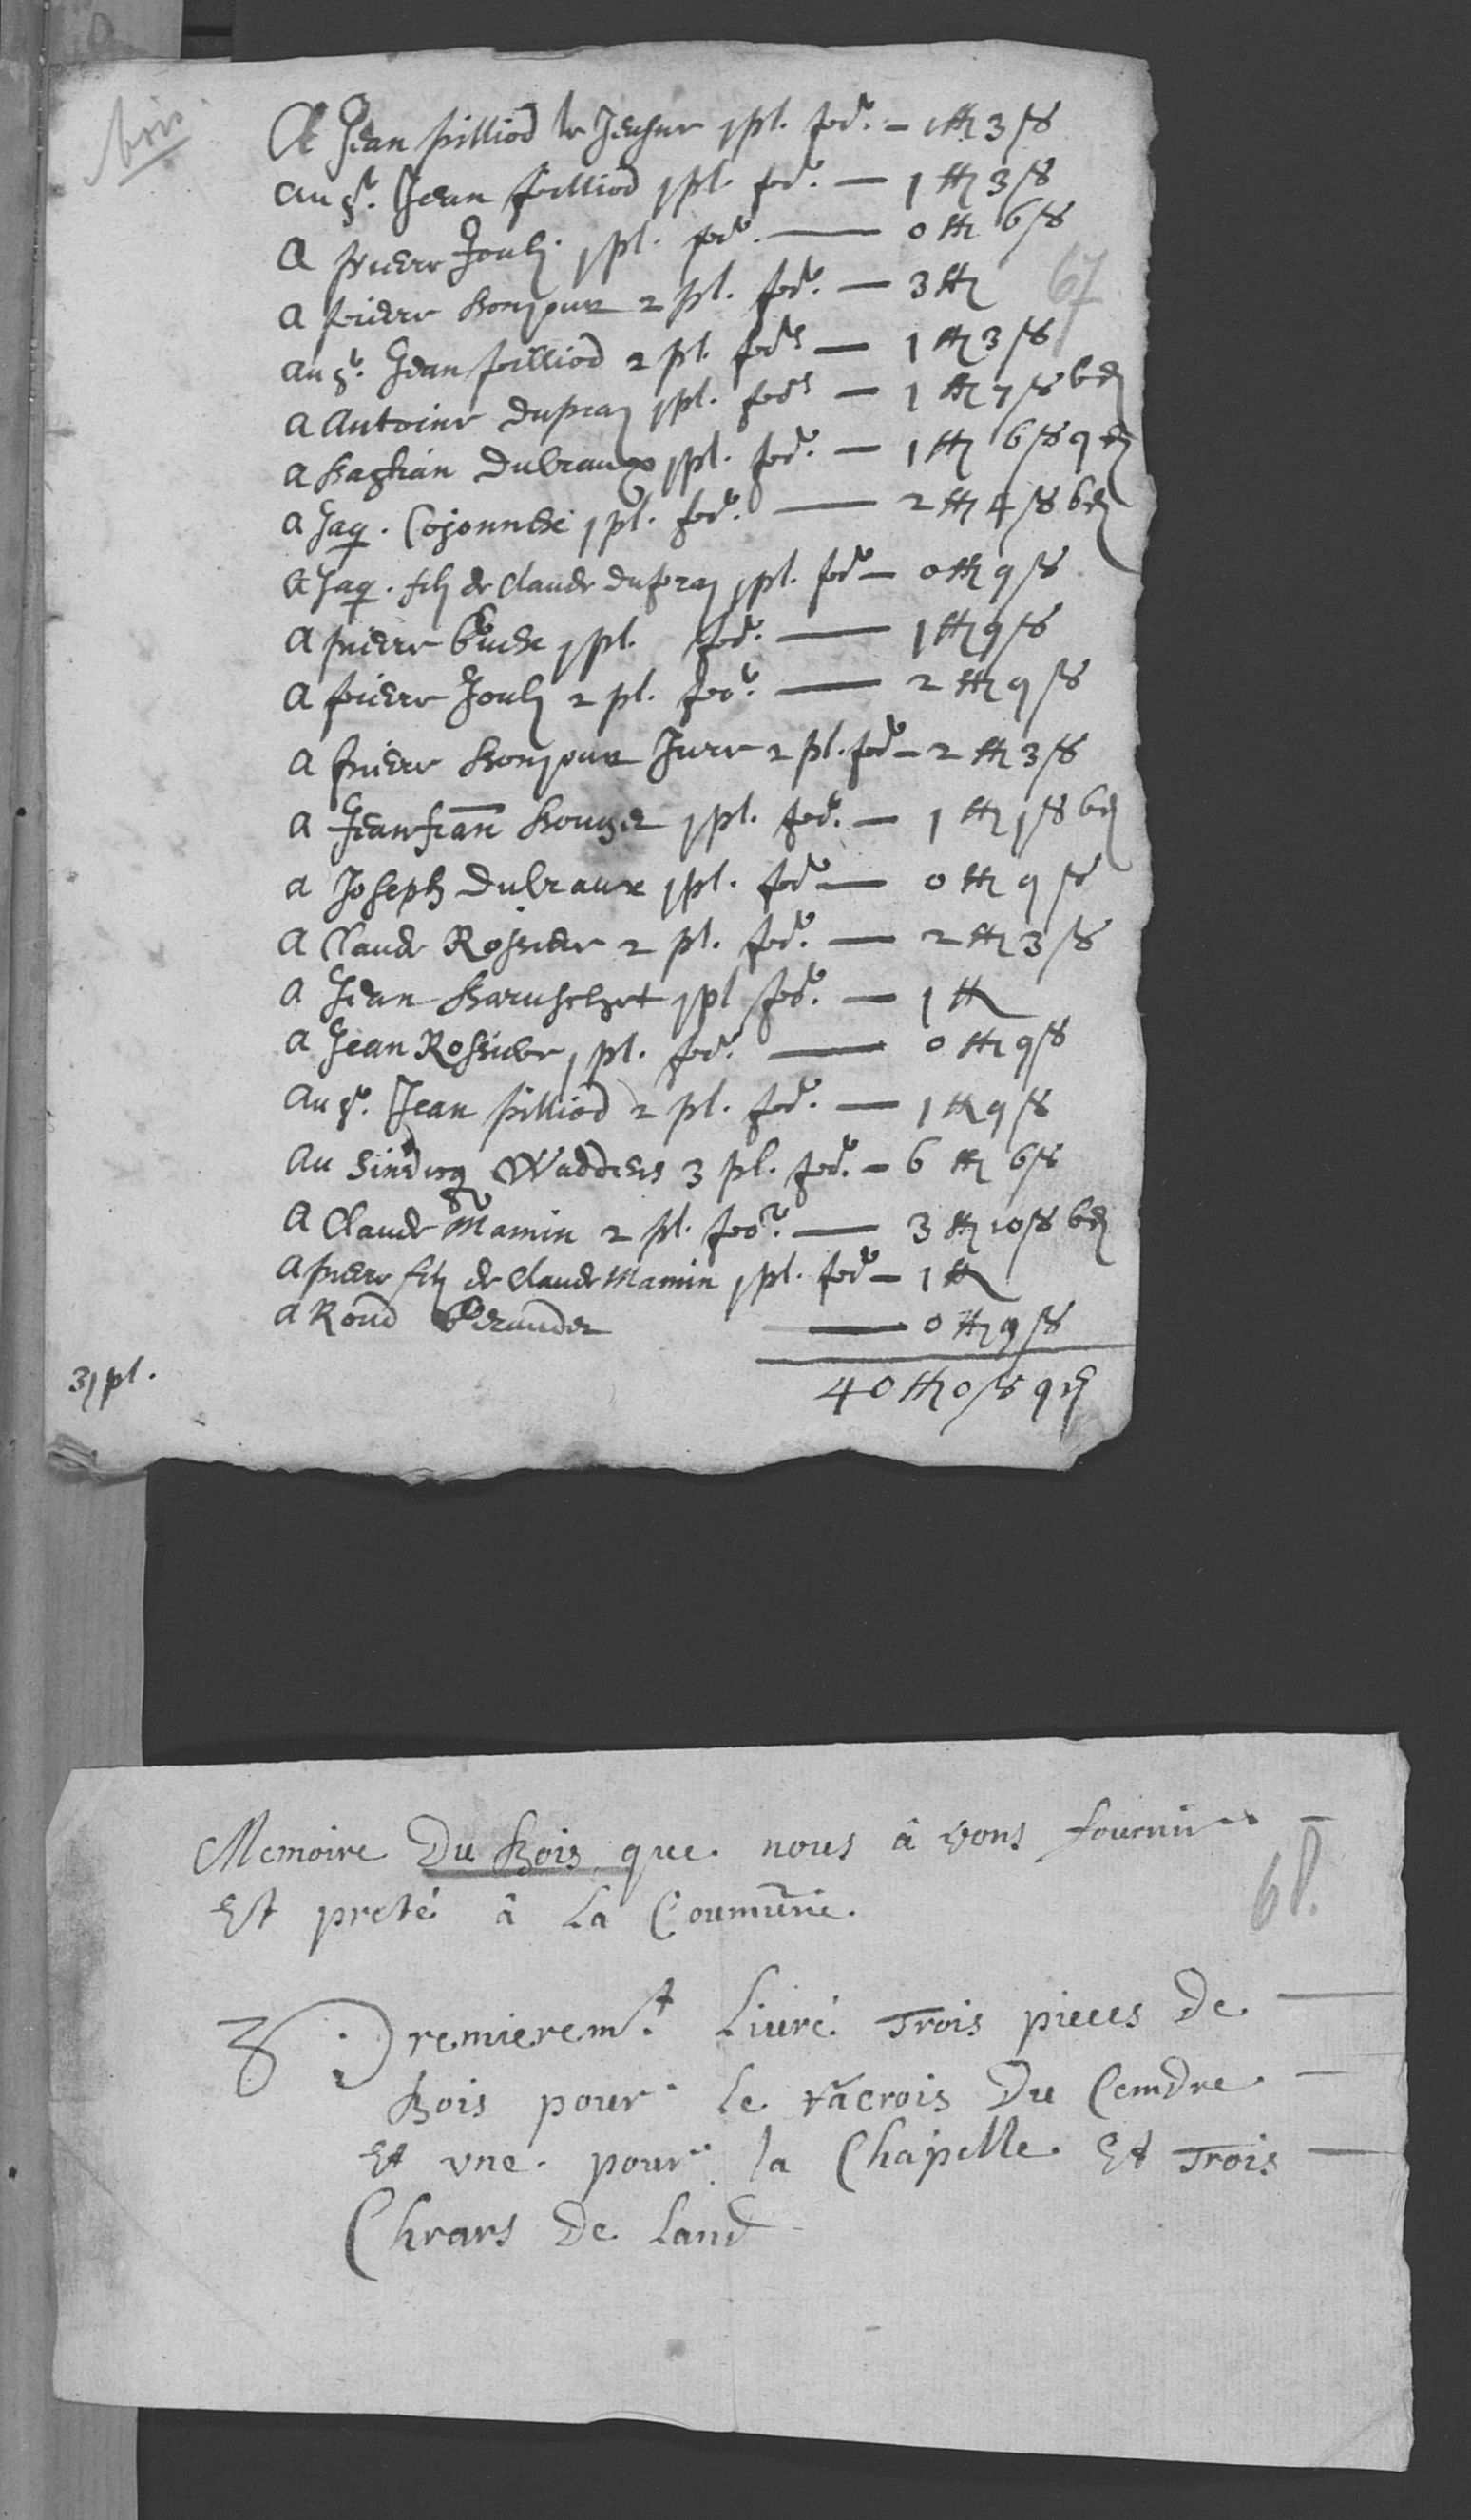 bois
A Jean pilliod le Jeusne 1 pl. fod. – 1 ℔ 3 ß
au sr. Jean pilliod 1 pl. fod. — 1 ℔ 3 ß
A pierre Jouly 1 pl. fod. — 0 ℔ 6 ß
67
A pierre bonjour 2 pl. fod. — 3 ℔
au sr. Jean pilliod 2 pl. fod. — 1 ℔ 3 ß
A Antoine dupraz 1 pl. fod. — 1 ℔ 7 ß 6 d
A bastian dubraux 1 pl. fod. — 1 ℔ 6 ß 9 d
A Jaq. Cojonnex 1 pl. fod. — 2 ℔ 4 ß 6 d
A Jaq. filz de Claude dupraz 1 pl. fod. – 0 ℔ 9 ß
A pierre 1 pl. fod. — 1 ℔ 9 ß
A pierre Jouly 2 pl. fod. — 2 ℔ 9 ß
A pierre bonjour Jure 2 pl. fod. – 2 ℔ 3 ß
A Jeanfran 1 pl. fod. — 1 ℔ 1 ß 6 d
A Joseph dubraux 1 pl. fod. — 0 ℔ 9 ß
A Claude Rossier 2 pl. fod. — 2 ℔ 3 ß
A Jean 1 pl fod. — 1 ℔
A Jean Rossier 1 pl. fod. — 0 ℔ 9 ß
Au sr. Jean pilliod 2 pl. fod. — 1 ℔ 9 ß
Au Sindicq Madders 3 pl. fod. – 6 ℔ 6 ß
A Claude Mamin 2 pl. fod. — 3 ℔ 10 ß 6 d
A pierre filz de Claude Mamin 1 pl. fod. – 1 ℔
A Rond — 0 ℔ 9 ß
31 pl. 40 ℔ 0 ß 9 d
Memoire Du Bois que nous â vons fournir –
Et preté â La Coumune.
68.
3 Premieremt. Liuré Trois pieces De —
Bois pour le racrois Du Cemdre –
Et vne pour la Chapelle Et Trois —
Chrars De Land